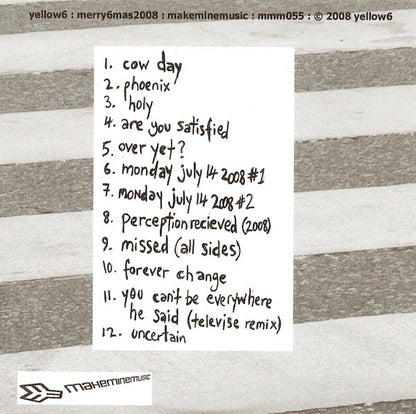 yellow6 : merry6mas2008 : makeminemusic : mmm055 : © 2008 yellow6
1. cow day
2. phoenix
3. holy
4. are you satisfied
5. over yet?
6. monday july 14 2008 #1
7. monday july 14 2008 #2
8. perception recieved (2008)
9. missed (all sides)
10. forever change
11. you can't be everywhere
he said (televise remix)
12. uncertain
makeminemusic